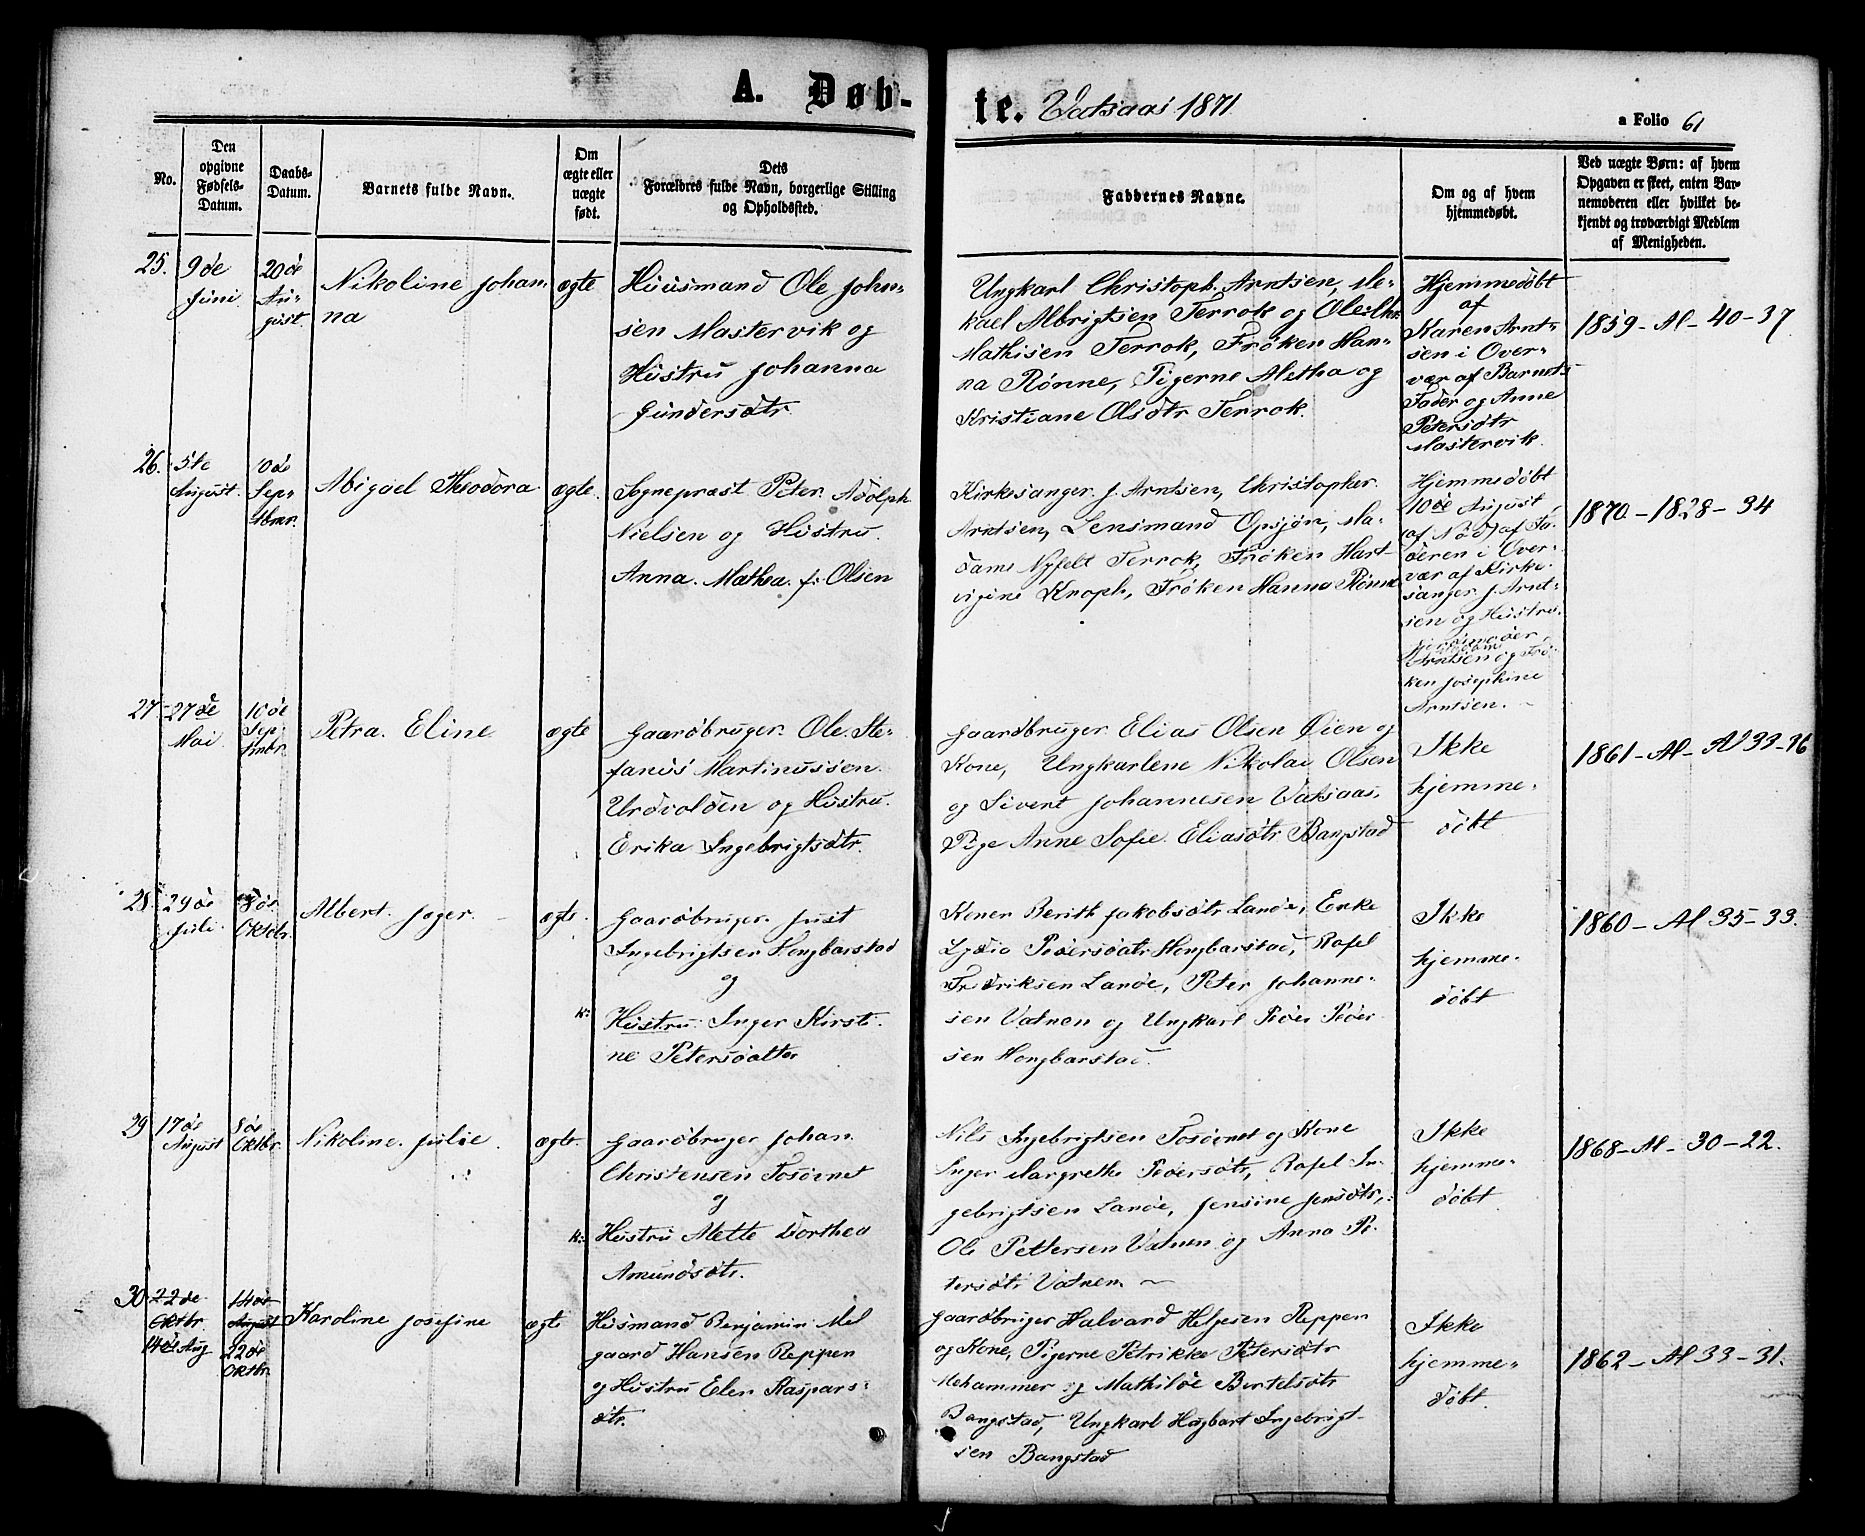 A. Døb-
te. Vatsaas 1871
a Folio 61
No.
Den
opgivne
Fødsels-
Datum.
Daabs-
Datum.
Barnets fulde Navn.
Om
ægte eller
uægte
født.
Dets
Forældres fulde Navn, borgerlige Stilling
og Opholdssted.
Faddernes Navne.
Om og af hvem
hjemmedøbt.
Ved uægte Børn: af hvem
Opgaven er skeet, enten Bar-
nemoderen eller hvilket be-
kjendt og troværdigt Medlem
af Menigheden.
25.
9de
Juni
20de
Au-
gust
Nikoline Johan-
na
ægte
Huusmand Ole John-
sen Mastervik og
Hustru Johanna
Gundersdtr
Ungkarl Christoph. Arntsen, Mi-
kael Albrigtsen Terrok og Ole
Mathisen Terrok, Frøken Han-
na Rønne, Pigerne Metha og
Kristiane Olsdtr Terrok.
Hjemmedøbt
af
Karen Arnt-
sen i Over-
vær af Barnets
Fader og Anne
Petersdtr
Mastervik.
1859-Al-40-37
26.
5te
August.
10de
Sep-
tbmr.
Abigael Theodora
ægte.
Sogneprest Peter Adolph
Nielsen og Hustru.
Anna. Mathea. f: Olsen
Kirkesanger J. Arntsen, Christopher
Arntsen, Lensmand Opsjøn, Ma-
dame Nyfelt Terrok, Frøken Hart-
vigine Knoph, Frøken Hanna Rønne
Hjemmedøbt
10de August
(af Nød) af Fa-
deren i Over-
vær af Kirke-
sanger J. Arnt-
sen og Hustru.
Arntsen og Frø-
ken Josephine
Arntsen.
1870-1828-34
27
27de
Mai
10de
Sep-
tmbr.
Petra. Eline
ægte
Gaardbruger. Ole. Ste-
fanus Martinussen.
Urdvolden og Hustru.
Erika Ingebrigtsdtr.
Gaardbruger Elias Olsen Øien og
Kone, Ungkarlene Nikolai Olsen
og Sivert Johannesen Vatsaas,
Pige Anne Sofie. Eliasdtr Bangstad
Ikke
hjemme-
døbt
1861-Al-Al 33-36
28.
29de
Juli
8de
Oktbr.
Albert. Jæger.
ægte.
Gaardbruger. Just
Ingebrigtsen Hongbarstad
og
k:
Hustru. Inger Kirsti-
ne Petersdatter
Koner Berith Jakobsdtr Lande, Enke
Lydia Pedersdatr Hongbarstad, Rafel
Fredriksen Lande, Peter Johanne-
sen Vatnen og Ungkarl Peder Peder-
sen Hongbarstad.
Ikke
hjemme-
døbt
1860-Al 35-33.
29
17de
August
8de
Oktbr.
Nikoline. Julie.
ægte.
Gaardbruger Johan
Christensen Fosdnet
og
k:
Hustru Mette Dorthea
Amundsdtr.
Nils Ingebrigtsen Fosdnet og Kone
Inger Margrethe Pedersdtr, Rafel In-
gebrigtsen Lande, Jensine Jensdtr,
Ole Pettersen Vatnen og Anna Pe-
tersdtr Vatnem.
Ikke
hjemme-
døbt
1868-Al-30-22.
30
22de
Oktbr.
14de Aug
14de
August
22de
Oktbr.
Karoline Josefine
ægte
Husmand Benjamin Mel
gaard Hansen Reppen
og Hustru Elen Kaspars-
dtr.
Gaardbruger Halvard Helgesen Reppen
og Kone, Pigerne Petrikke Petersdtr
Mehammer og Mathilde Bertelsdtr
Bangstad, Ungkarl Hagbart Ingebrigt-
sen Bangstad
Ikke
hjemme-
døbt.
1862-Al 33-31.